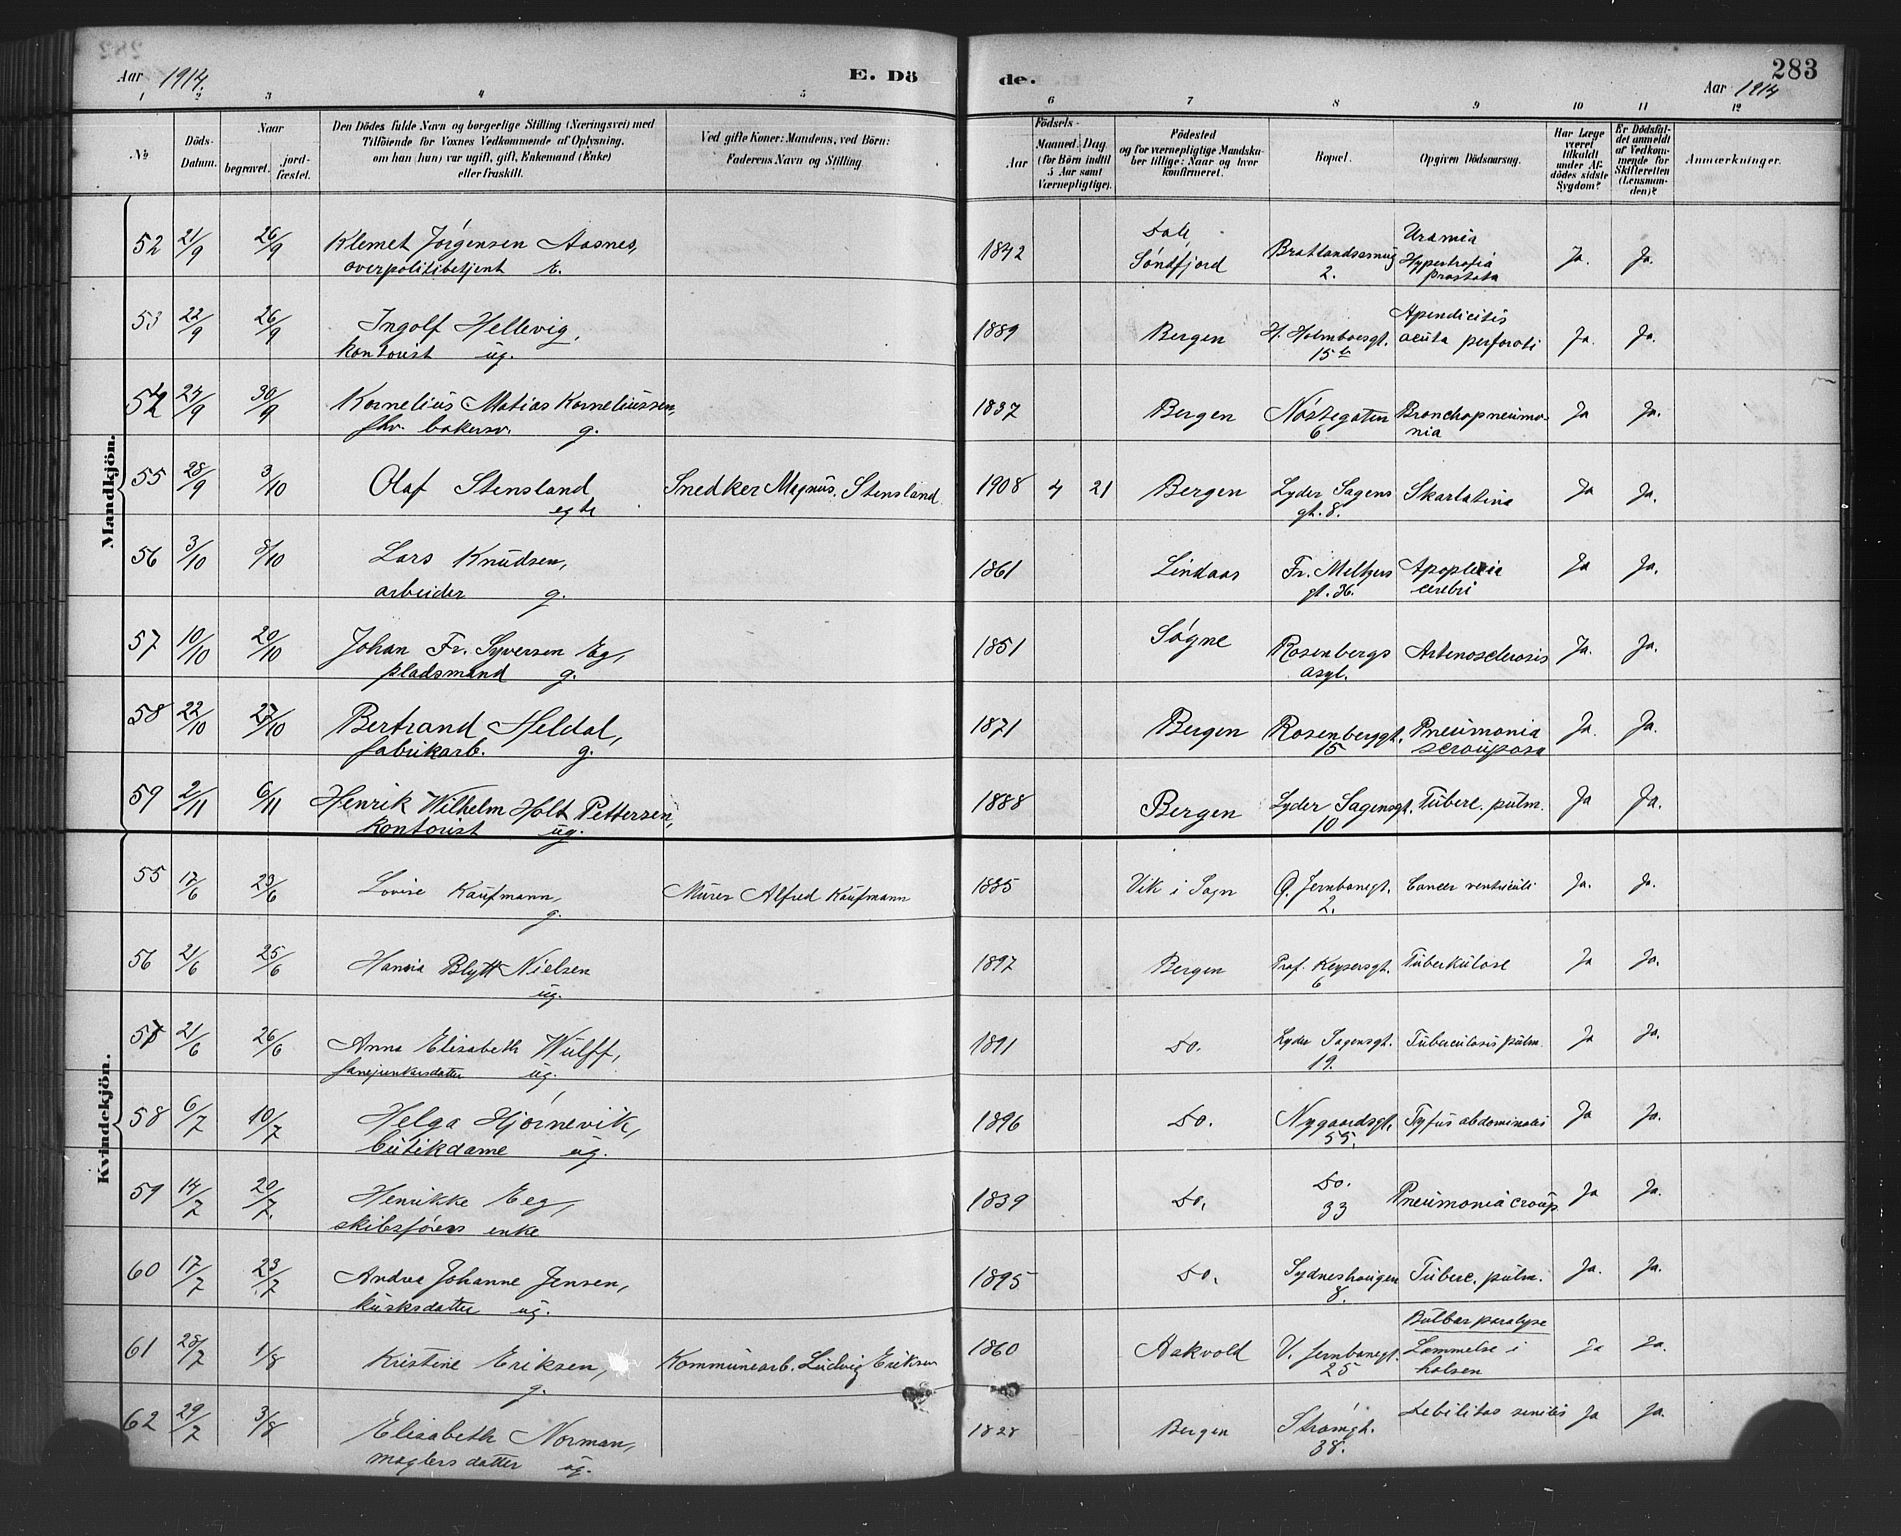 Aar 1914.
E. Dö
de.
283
Aar 1914
1 2 3 4 5 6 7 8 9 10 11 12
No
Döds-
Datum.
Naar
begravet.
jord-
fæstet.
Den Dödes fulde Navn og borgerlige Stilling (Næringsvei) med
Tilföiende for Voxnes Vedkommende af Oplysning,
om han (hun) var ugift, gift, Enkemand (Enke)
eller fraskilt.
Ved gifte Koner: Mandens, ved Börn:
Faderens Navn og Stilling.
Födsels-
Aar
Maaned. Dag.
(for Börn indtil
5 Aar samt
Værnepligtige).
Födested
og for værnepligtige Mandska-
ber tillige: Naar og hvor
konfirmeret.
Bopæl.
Opgiven Dödsaarsag.
Har Læge
været
tilkaldt
under Af-
dödes sidste
Sygdom?
Er Dödsfal-
det anmeldt
af Vedkom-
mende for
Skifteretten
(Lensman-
den)?
Anmærkninger.
Mandkjön.
52 21/9 26/9 Klemet Jörgensen Aasnes, 1842 Dale Bratlandssmug Uramia Ja. Ja.
overpolitibetjent E. Söndfjord 2. Hypertrofia
prostata
53 22/9 26/9 Ingolf Hellevig, 1889 Bergen H. Holmboesgt. Apendicitis Ja. Ja.
kontorist ug. 15 acuta perforati
54 24/9 30/9 Kornelius Matias Korneliussen, 1837 Bergen Nöstegaten Bronchopneumo- Ja Ja.
fhv. bakersv. g. 6 nia
55 28/9 3/10 Olaf Stensland Snedker Magnus Stensland. 1908 4 21 Bergen Lyder Sagens Skarlatina Ja Ja.
egte gt. 8.
56 3/10 8/10 Lars Knudsen, 1861 Lindaas Fr. Meltzers Apoplexia Ja Ja.
arbeider g. gt. 36. cerebri
57 10/10 20/10 Johan Fr. Syversen Eg, 1851 Søgne Rosenbergs Arteriosclerosis Ja. Ja.
pladsmand g. asyl.
58 22/10 27/10 Bertrand Heldal, 1871 Bergen Rosenberggt. Pneumonia Ja. Ja.
fabrikarb. g. 15
59 2/11 6/11 Henrik Wilhelm Holt Pettersen, 1888 Bergen Lyder Sagensgt. Tuberc. pulm. Ja Ja.
kontorist ug. 10
Kvindekjön.
55 17/6 23/6 Lovise Kaufmann, Murer Alfred Kaufmann 1885 Vik i Sogn Ø. Jernbanegt. Cancer ventriculi Ja. Ja.
g. 2.
56 21/6 25/6 Hansia Blytt Nielsen 1897 Bergen Prof. Keysersgt. Tuberkulose Ja Ja.
ug. 6
57 21/6 26/6 Anna Elisabeth Wulff, 1891 Do. Lyder Sagensgt. Tuberculosis pulm. Ja Ja.
fanejunkersdatter ug. 19.
58 6/7 10/7 Helga Hjörnevik, 1896 Do. Nygaardsgt. Tyfus abdominalis Ja Ja.
butikdame ug. 55.
59 14/7 20/7 Henrikke Eeg, 1839 Do. Do. Pneumonia croup Ja Ja.
skibsförers enke 33
60 17/7 23/7 Andrea Johanne Jensen, 1895 Do. Sydneshaugen Tuberc. pulm. Ja. Ja.
kusksdatter ug. 8.
61 28/7 1/8 Kristine Eriksen, Kommunearb. Ludvig Eriksen 1860 Aakvold V. Jernbanegt. Bulbærparalyse Ja Ja.
g. 25 Lammelse i
halsen
62 29/7 3/8 Elisabeth Norman, 1828 Bergen Strömgt. Debilitas senilis Ja Ja.
maglers datter ug. 38.